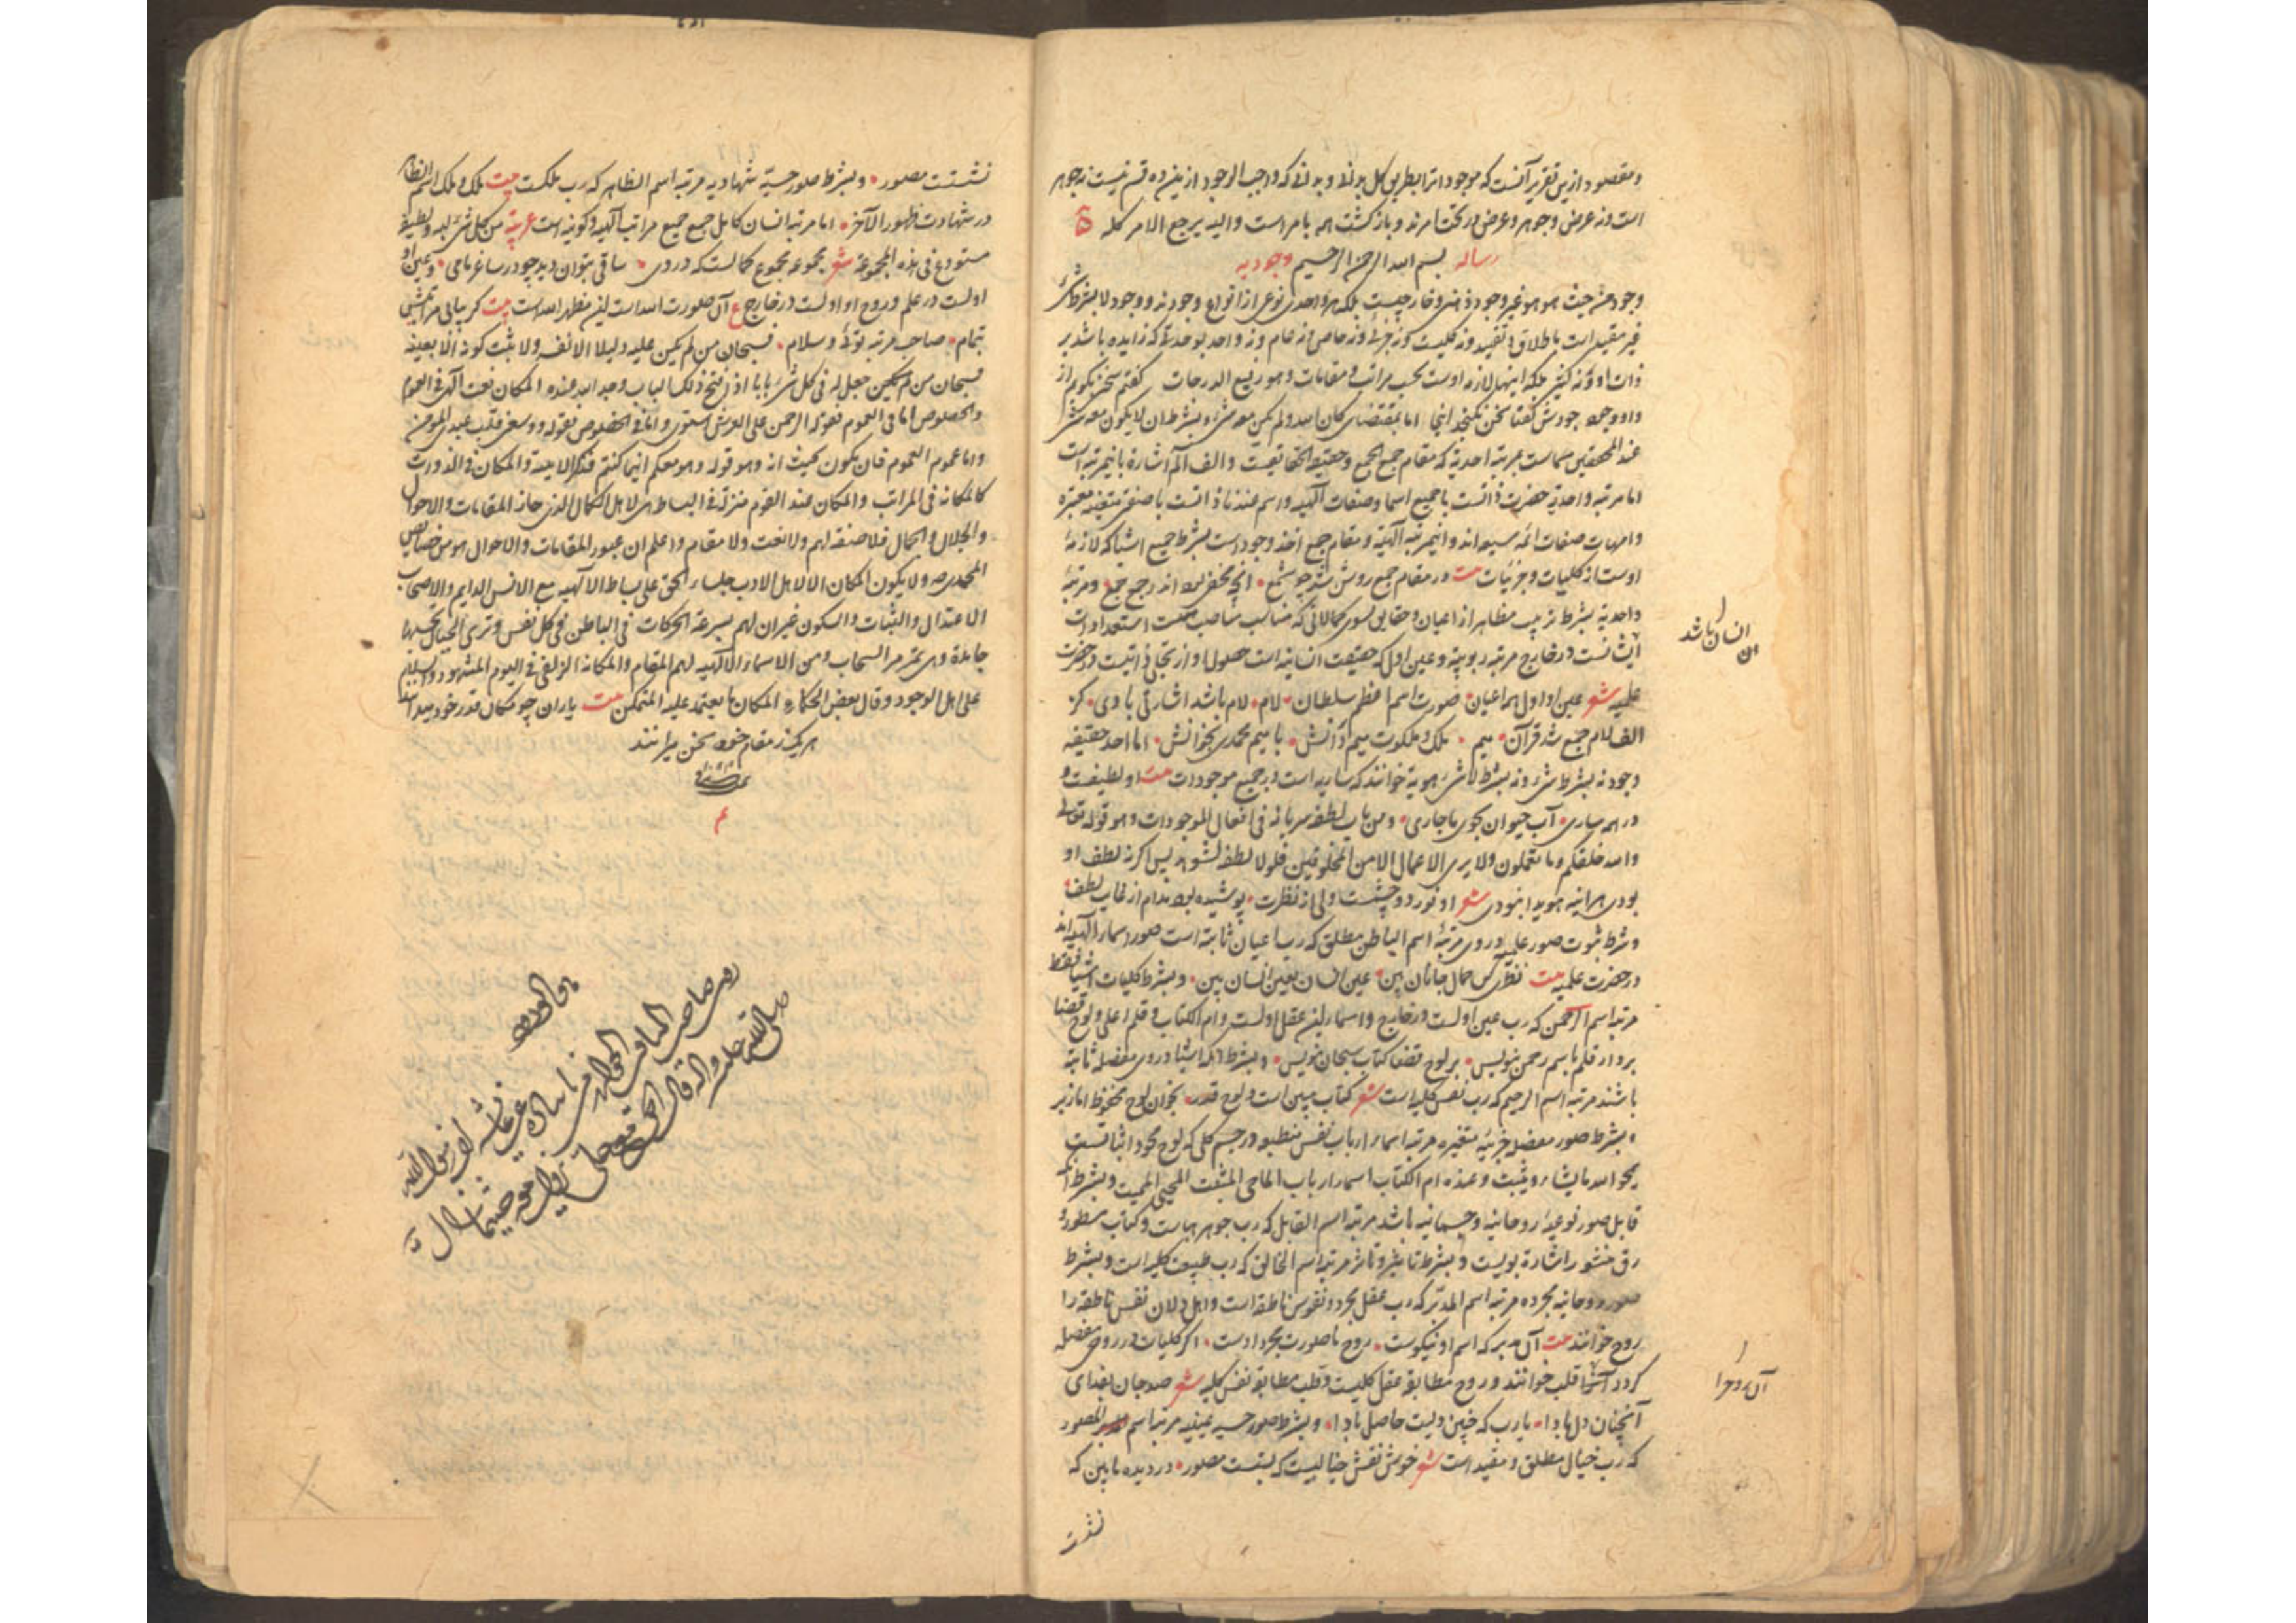 و مقصود ازین تقریر آنست که موجودات را بطریق کل بدانی و بدانی که واجب الوجود ازین ده قسم نیست نه جوهر
است و نه عرض و جوهر و عرض در تحت امرند و بازگشت همه بامر است والیه یرجع الامر کله
رساله بسم الله الرحمن الرحیم وجودیه
وجود من حیث هو هو غیر وجود ذهنی و خارجیست بلکه هر واحدی نوعی از انواع وجودند و وجود لا بشرط شی
غیر مقید است باطلاق و تقیید و نه کلیست و نه جزئی و نه خاص و نه عام و نه واحد بوحدتی که زایده باشد بر
ذات او و نه کثیر بلکه اینها لازمه اوست بحسب مراتب و مقامات و هو رفیع الدرجات گفتم سخنی بگویم از
وجودش گفتا سخن نگنجد اینجا اما بمقتضای کان الله ولم یکن معه شیء و بشرط ان لا یکون معه شی
عند المحققین مسماست بمرتبه احدیه که مقام جمع الجمع و حقیقة الحقایقست و الف الم اشارة باین مرتبه است
اما مرتبه واحدیه حضرت ذاتست با جمیع اسما و صفات الهیه و اسم عندنا ذاتست با صفتی متعینه معتبره
و امهات صفات ائمه سبعه اند و این مرتبه الهیه و مقام جمع اخذ وجود است بشرط جمیع اشیا که لازمهٔ
اوست از کلیات و جزئیات بیت در مقام جمع روشن شد چو شمع آنچه مخفی بود اندر جمع جمع و مرتبهٔ
واحدیه بشرط ترتیب مظاهر از اعیان و حقایق بسوی کمالاتی که مناسب مناصب استعدادات
ایشانست در خارج مرتبه ربوبیة و عین اول که حقیقت انسانیه است حصول او از تجلی ذاتیست در حضرت
علمیه شعر عین او اول همه اعیان صورت اسم اعظم سلطان لام لام باشد اشارتی با وی کز
الف لام جمع شد قرآن میم ملک و ملکوت میم دانش با میم محمدی بخوانش اما احد حقیقیه
وجود نه بشرط شی و نه بشرط لا شی هویة خوانند که ساریه است در جمیع موجودات بیت او لطیفست و
در همه ساری آب حیوان بجوی ما جاری و من باب لطفه سریانه فی افعال الموجودات و هو قوله تعالی
والله خلقکم وما تعملون ولا یری الاعمال الا من المخلوقین فلولا لطفه لشوهد پس اگر نه لطف او
بودی هر آینه هویدا نمودی شعر او نور دو چشمست ولی از نظرت پوشیده بود مدام از غایت لطف
و شرط ثبوت صور علمیه در وی مرتبهٔ اسم الباطن مطلق که رب اعیان ثابته است صور اسماء الهیه اند
در حضرت علمیه بیت نظری کن جمال جانان بین عین انسان بعین انسان بین و بشرط کلیات اشیا فقط
مرتبه اسم الرحمن که رب عین اولست در خارج و اسمار این عقل اولست و ام الکتاب و قلم اعلی و لوح قضا
بردار قلم باسم رحمن بنویس بر لوح قضا کتاب سبحان بنویس و بشرط آنکه اشیا در وی مفصله ثابته
باشند مرتبه اسم الرحیم که رب نفس کلیه است شعر کتاب مبین است و لوح قدر بخوان لوح محفوظ ما از بر
و بشرط صور مفصله جزئیه متغیره مرتبه اسماء ارباب نفس منطبعه در جسم کلی که لوح محو و اثباتست
یمحوا الله ما یشاء ویثبت وعنده ام الکتاب اسماء ارباب الماحی المثبت المحیی الممیت و بشرط آنکه
قابل صور نوعیهٔ روحانیه و جسمانیه باشد مرتبه اسم القابل که رب جوهر هباست و کتاب مسطور و
رق منشور اشارة بویست و بشرط تاثیر و تاثر مرتبه اسم الخالق که رب طبیعت کلیه است و بشرط
صور روحانیه مجرده مرتبه اسم المدبر که رب عقل مجرد و نفوس ناطقه است و اهل دلان نفس ناطقه را
روح خوانند بیت آن مدبر که اسم او نیکوست روح ما صورت مجرد اوست اگر کلیات در روی مفصله
گردد آنرا قلب خوانند و روح مطابق عقل کلیست و قلب مطابق نفس کلیه شعر صد جان بفدای
آنچنان دل بادا یا رب که چنین دلیت حاصل بادا و بشرط صور حسیه عینیه مرتبه اسم المصور
که رب خیال مطلق و مقید است شعر خوش نقش خیالیست که بستست مصور در دیده ما بین که
نشست
انسان باشد
آن روح را
نشستت مصور و بشرط صور حسیه شهادیه مرتبه اسم الظاهر که رب ملکست بیت ملک و ملک اسم الظاهر
در شهادت ظهور الآخر اما مرتبه انسان کامل جمع جمیع مراتب الهیه و کونیه است عربیه من کل شیء لبه ولطیفه
مستودع فی هذه المجموعة شعر مجموعه مجموع کمالست که در وی ساقی بتوان دید چو در ساغر ما می و عین او
اولست در علم و روح او اولست در خارج ع آن صورت الله است این مظهر الله است بیت گر بیابی مرتبتی
تمام صاحب مرتبه توئی و سلام فسبحان من لم یکن علیه دلیلا الا نفسه ولا یثبت کونه الا بعینه
فسبحان من لم یکن جعل له فی کل شیء بابا اذا فتح ذلک الباب وجد الله عنده المکان نعت الهی فی العموم
والخصوص اما فی العموم فقوله الرحمن علی العرش استوی واما فی الخصوص فقوله ووسعنی قلب عبدی المومن
واما عموم العموم فان یکون بحیث انه وهو قوله وهو معکم اینما کنتم فذکر الاینیة والمکان فی الدورات
کالمکانة فی المراتب والمکان عند القوم منزلة فی البساط هی لاهل الکمال الذین جازوا المقامات والاحوال
والجلال والجمال فلا صفة لهم ولا نعت ولا مقام واعلم ان عبور المقامات والاحوال هو من خصایص
المحمدی ولا یکون المکان الا لاهل الادب جلساء الحق علی بساط الالهیه مع الانس الدایم ولاصحاب
الاعتدال والثبات والسکون غیر ان لهم بسرعة الحرکات فی الباطن فی کل نفس وتری الجبال تحسبها
جامدة وهی تمر مر السحاب ومن الاسماء الالهیه لهم المقام والمکانة الزلفی فی الیوم المشهود والسلام
علی اهل الوجود وقال بعض الحکماء المکان ما یعتمد علیه المتمکن بیت یاران چو مکان قدر خود میدانند
هر یک ز مقام خود سخن میرانند
تمت
م
روی صاحب المناقب
صلی الله علیه وآله قال الحق مع علی